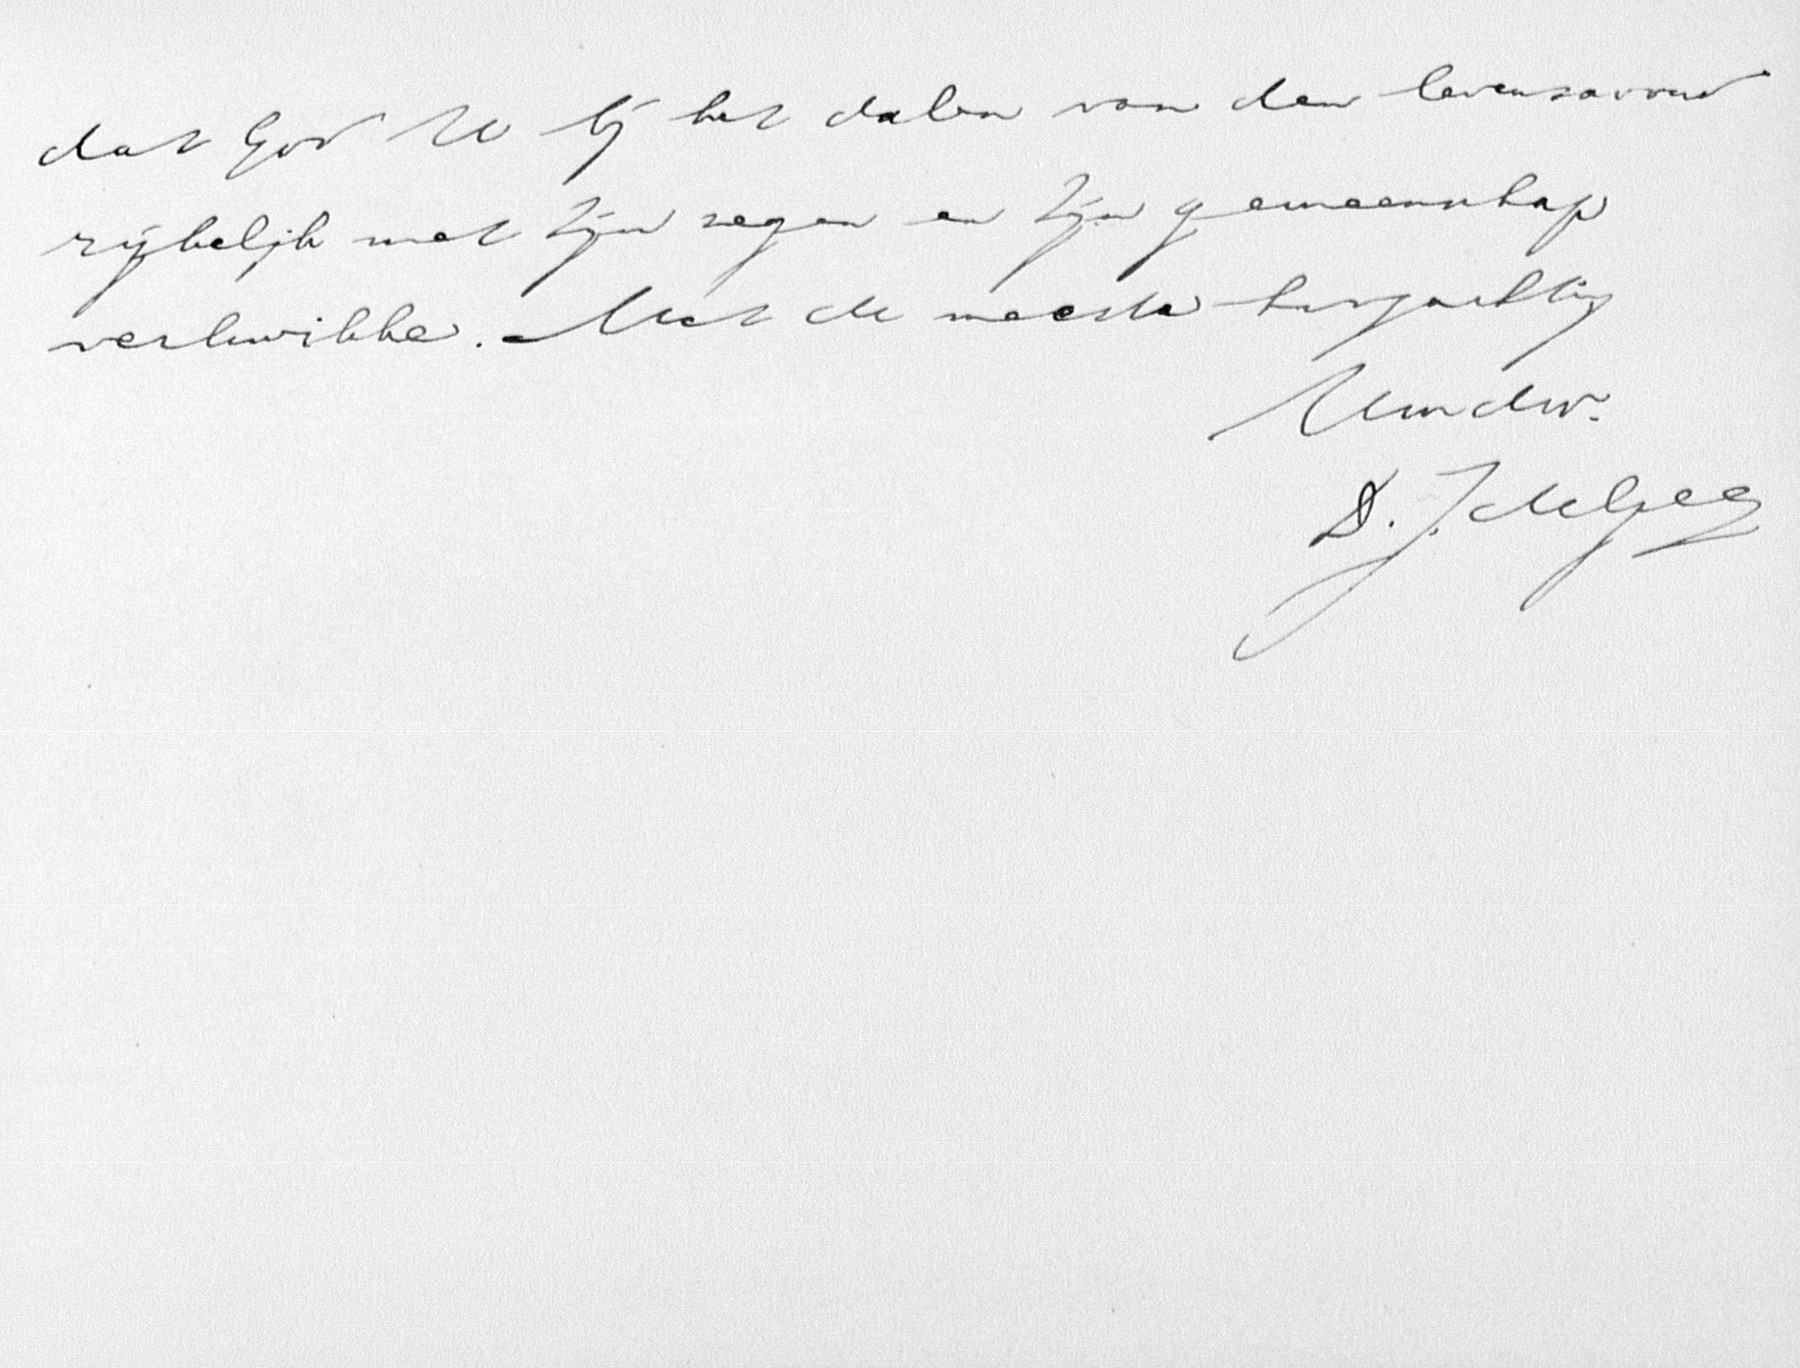 dat God U bij het dalen van den levensavond
rijkelijk met Zijn zegen en Zijn gemeenschap
verkwikke. Met de meeste hoogachting
Uw dw.
D. J. de Geer